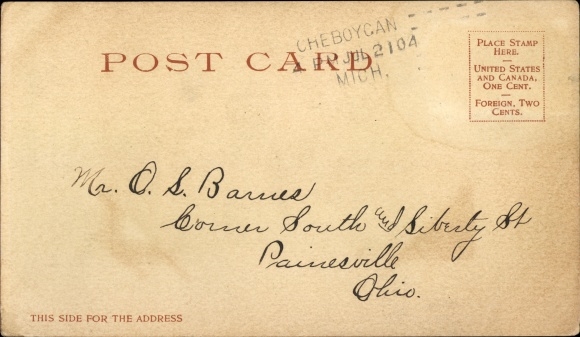 CHEBOYGAN
JUL 21 04
MICH.
POST CARD
PLACE STAMP
HERE.
UNITED STATES
AND CANADA,
ONE CENT.
FOREIGN, TWO
CENTS.
Mr. O. S. Barnes
Corner South and Liberty St
Painesville
Ohio.
THIS SIDE FOR THE ADDRESS